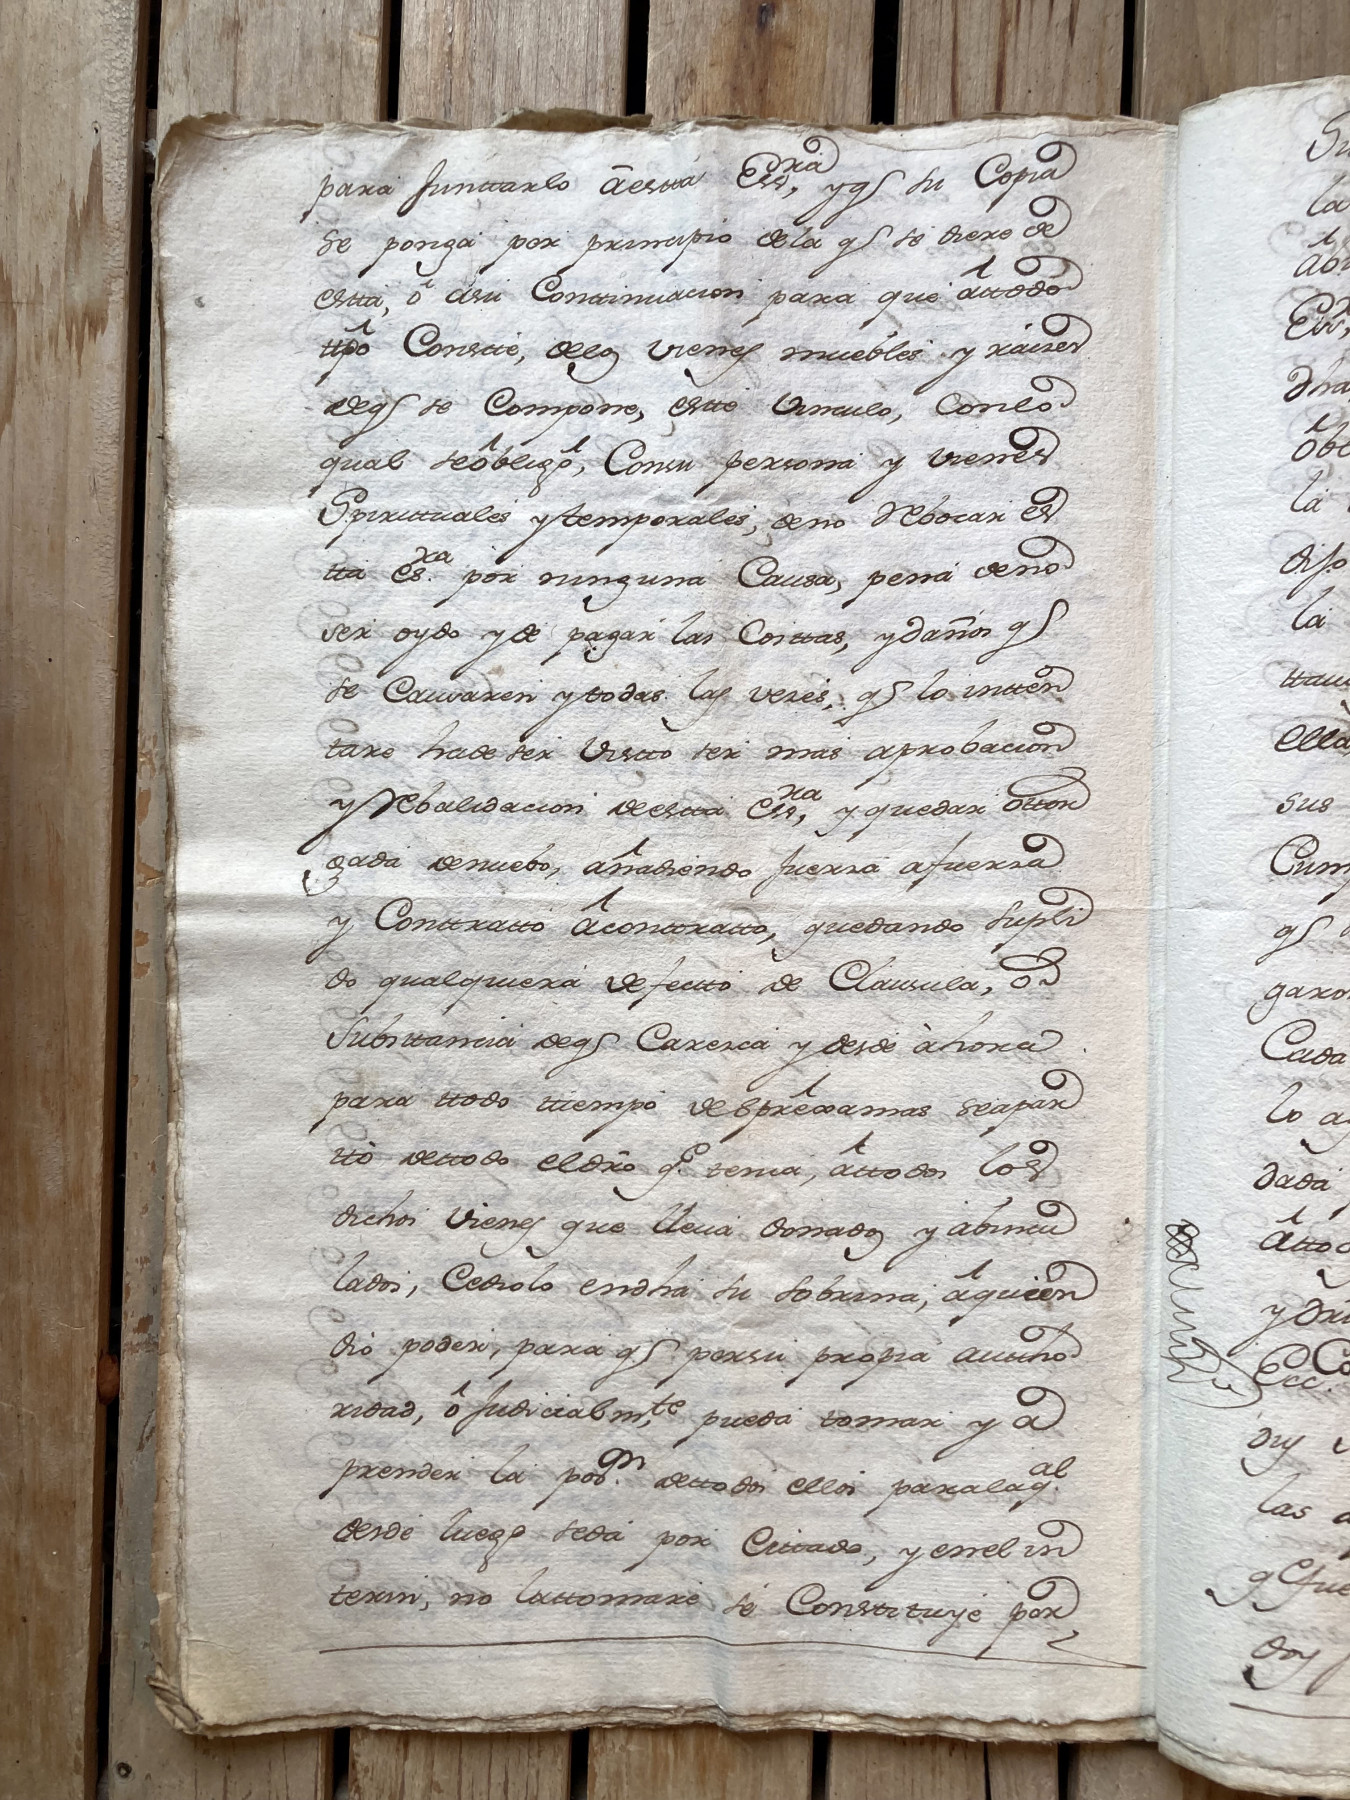 para Junttarlo âestta Essra, y q su Copia
se ponga por principio dela q se diere de
estta, ô asu Conttinuacion para que âttodo
ttpô Constte, delos vienes muebles y raizes
deq se Compone, estte Vinculo, Conlo
qual seôbligô, Consu persona y vienes
Spirittuales ytemporales, deno Rebocar es
tta esra por ninguna Causa, pena deno
ser oydo yde pagar las Costtas, ydaños q
se Causaren ytodas las vezes, q lo intten
tare hade ser Vistto ser mas aprobacion
y Rebalidacion deestta essra, y quedar ottor
gada denuebo, añadiendo fuerza afuerza
y Conttratto âconttratto, quedando supli
do qualquiera defectto de Clausula, ô
Substtancia deq Carezca y desde àhora
para ttodo ttiempo desprê xamas seapar
ttò dettodo eldrõ q.e tenia, âttodos los
dichos vienes que lleva donados y abincu
lados, Cediolo endha su sobrina, âquien
dio poder, para q persu propia auttho
ridad, ô Judicialmte pueda tomar y a
prender la poson dettodos ellos paralaqal
desde luego seda por Cittado, y enel in
terin, no lattomare se Constituye por
Esr,
dha
ôb
la
dispo
la
ella
sus
Cum
q
garo
Cada
lo a
dada
âtto
y dr
las a